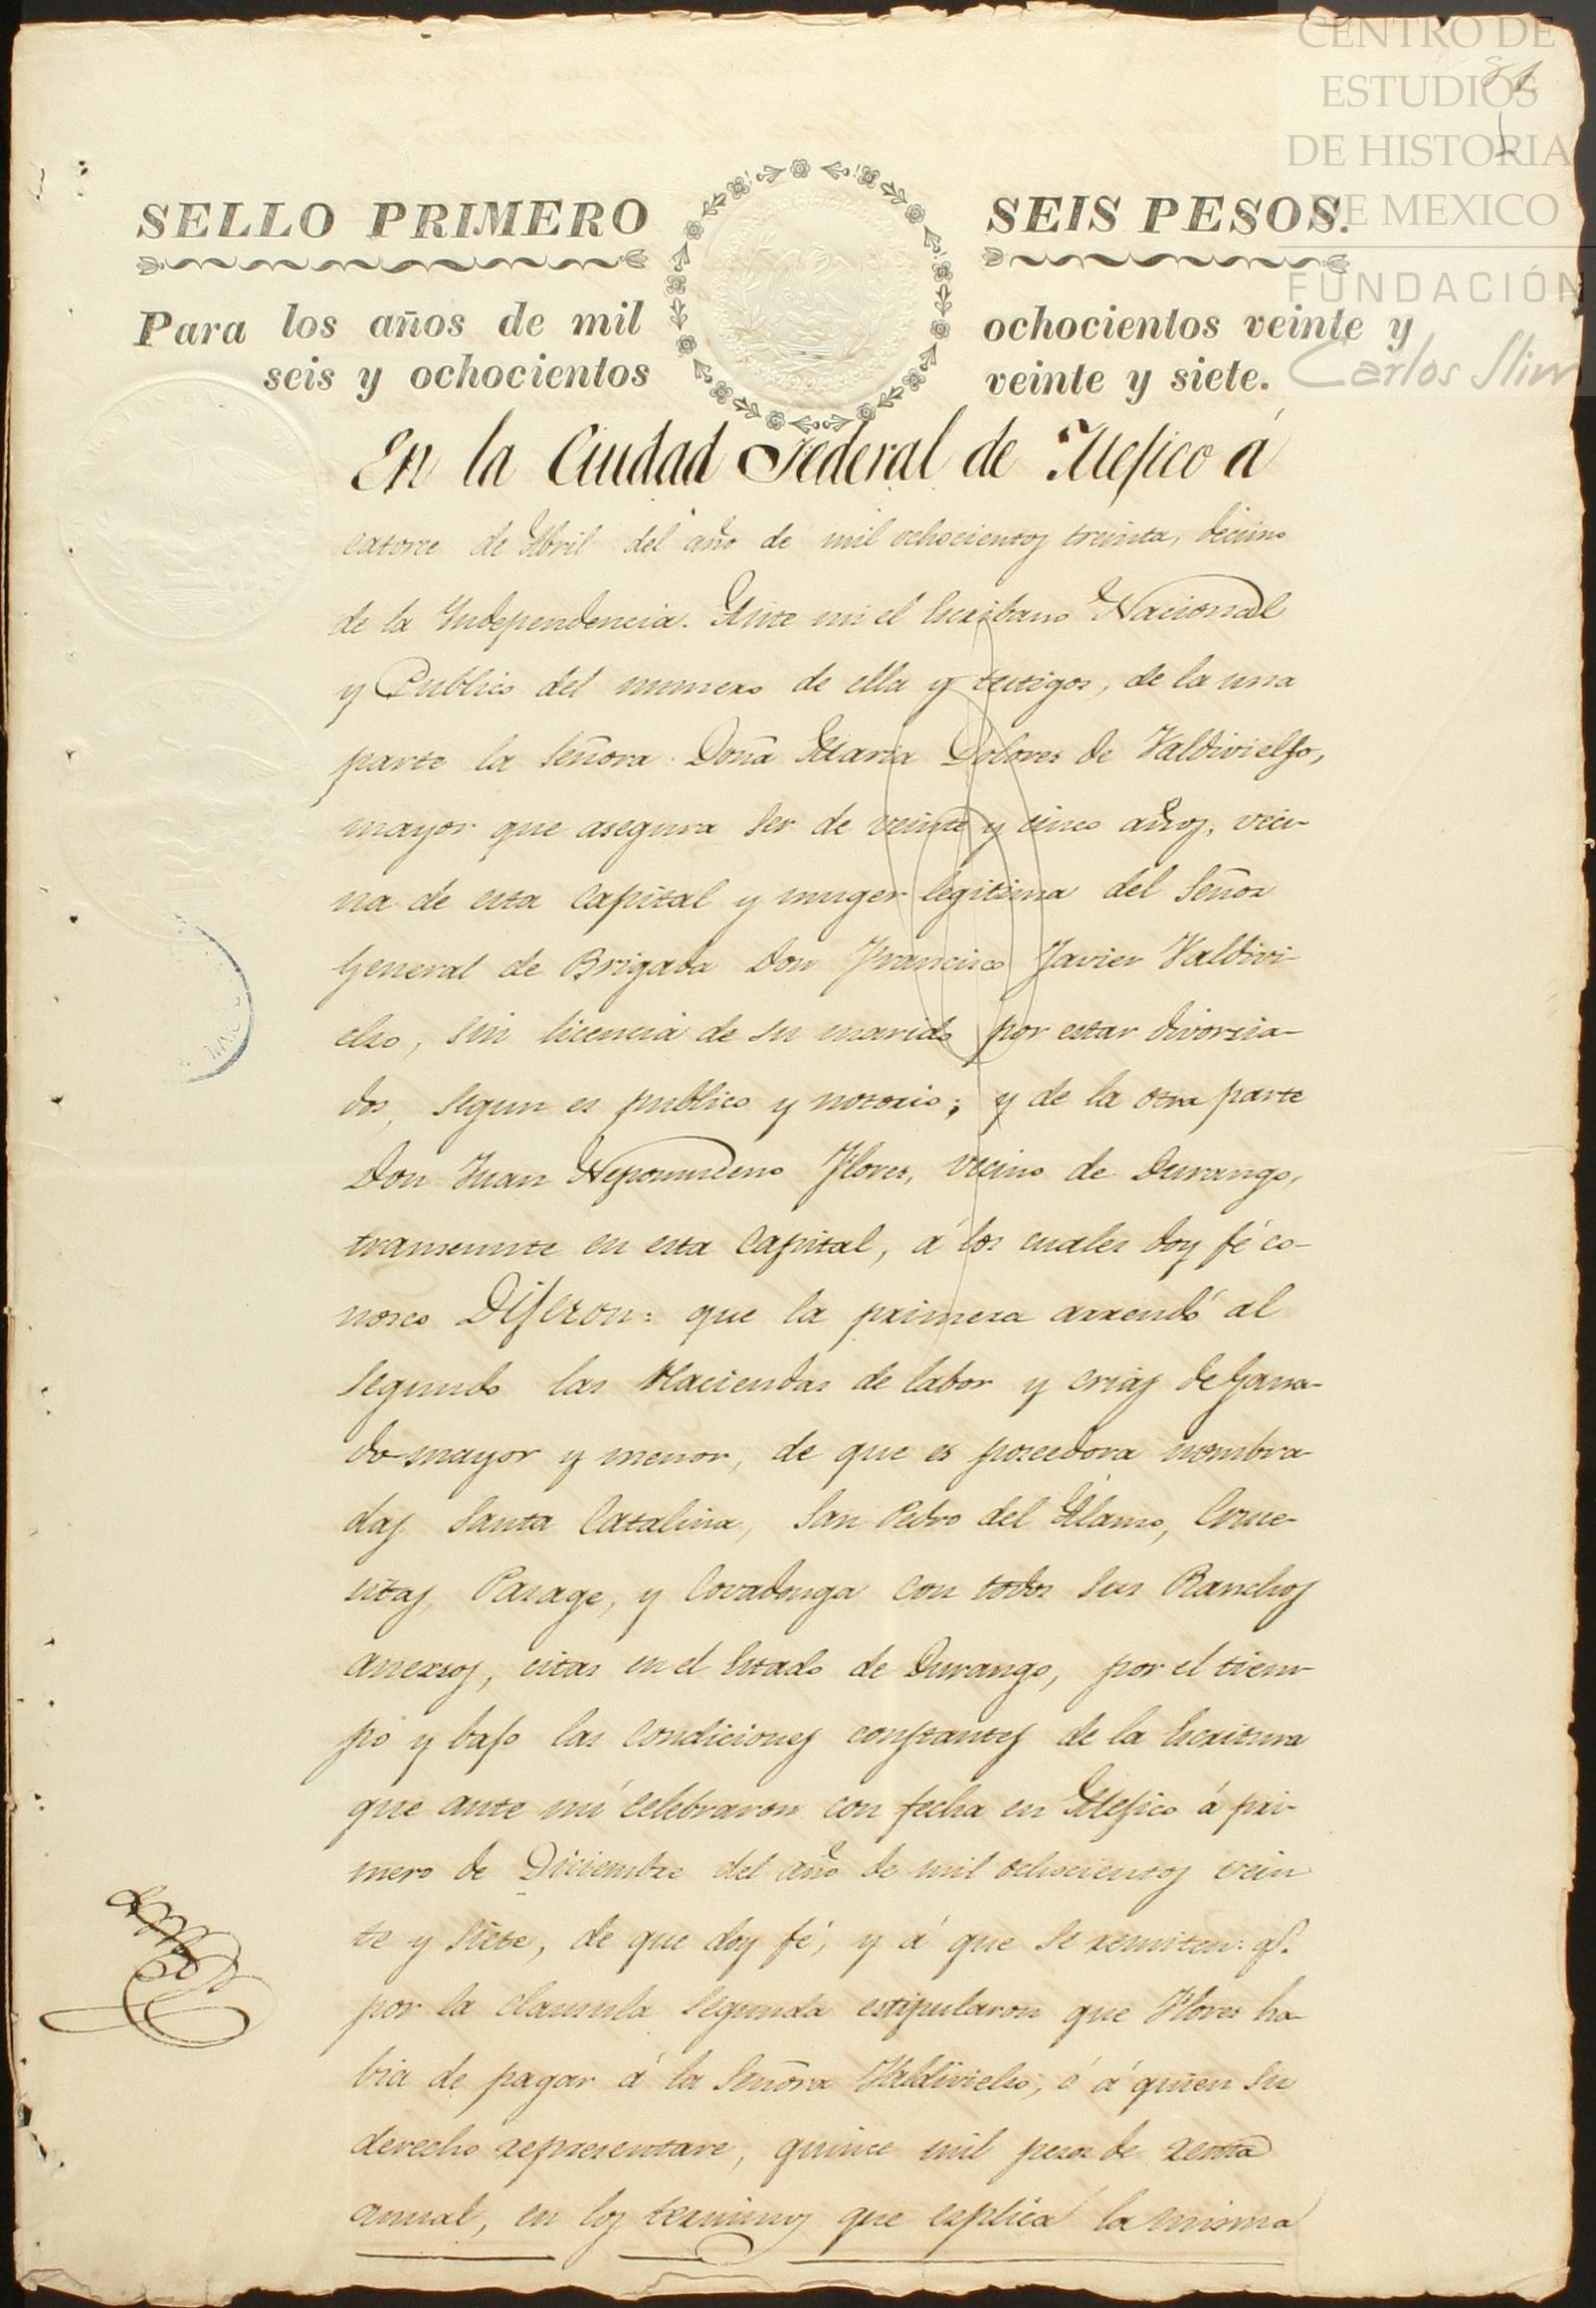 CENTRO DE
ESTUDIOS
DE HISTORIA
DE MEXICO
FUNDACIÓN
Carlos Slim
SELLO PRIMERO SEIS PESOS.
Para los años de mil ochocientos veinte y
seis y ochocientos veinte y siete.
En la Ciudad Federal de Mejico á
catorce de Abril del año de mil ochocientos treinta, decimo
de la Independencia. Ante mi el Escribano Nacional
y Publico del numero de ella y testigos, de la una
parte la Señora Doña Maria Dolores de Valdivielso,
mayor que asegura ser de veinte y cinco años, veci-
na de esta Capital y muger legitima del Señor
General de Brigada Don Francisco Javier Valdivi-
elso, sin licencia de su marido por estar divorcia-
dos, segun es publico y notorio; y de la otra parte
Don Juan Nepomuceno Flores, vecino de Durango,
transeunte en esta Capital, á los cuales doy fé co-
nosco Dijeron: que la primera arrendó al
segundo las Haciendas de labor y crias de Gana-
do mayor y menor, de que es poseedora nombra-
das Santa Catalina, San Pedro del Alamo, Cruce-
sitas, Pasage, y Covadonga con todos sus Ranchos
anexsos, citas en el Estado de Durango, por el tiem-
po y bajo las condiciones constantes de la Escritura
que ante mi celebraron con fecha en Mejico á pri-
mero de Diciembre del año de mil ochocientos vein
te y siete, de que doy fé, y á que se remiten: qe.
por la clausula segunda estipularon que Flores ha-
bia de pagar á la Señora Valdivielso, ó á quien su
derecho representare, quince mil pesos de renta
anual, en los terminos que esplica la misma